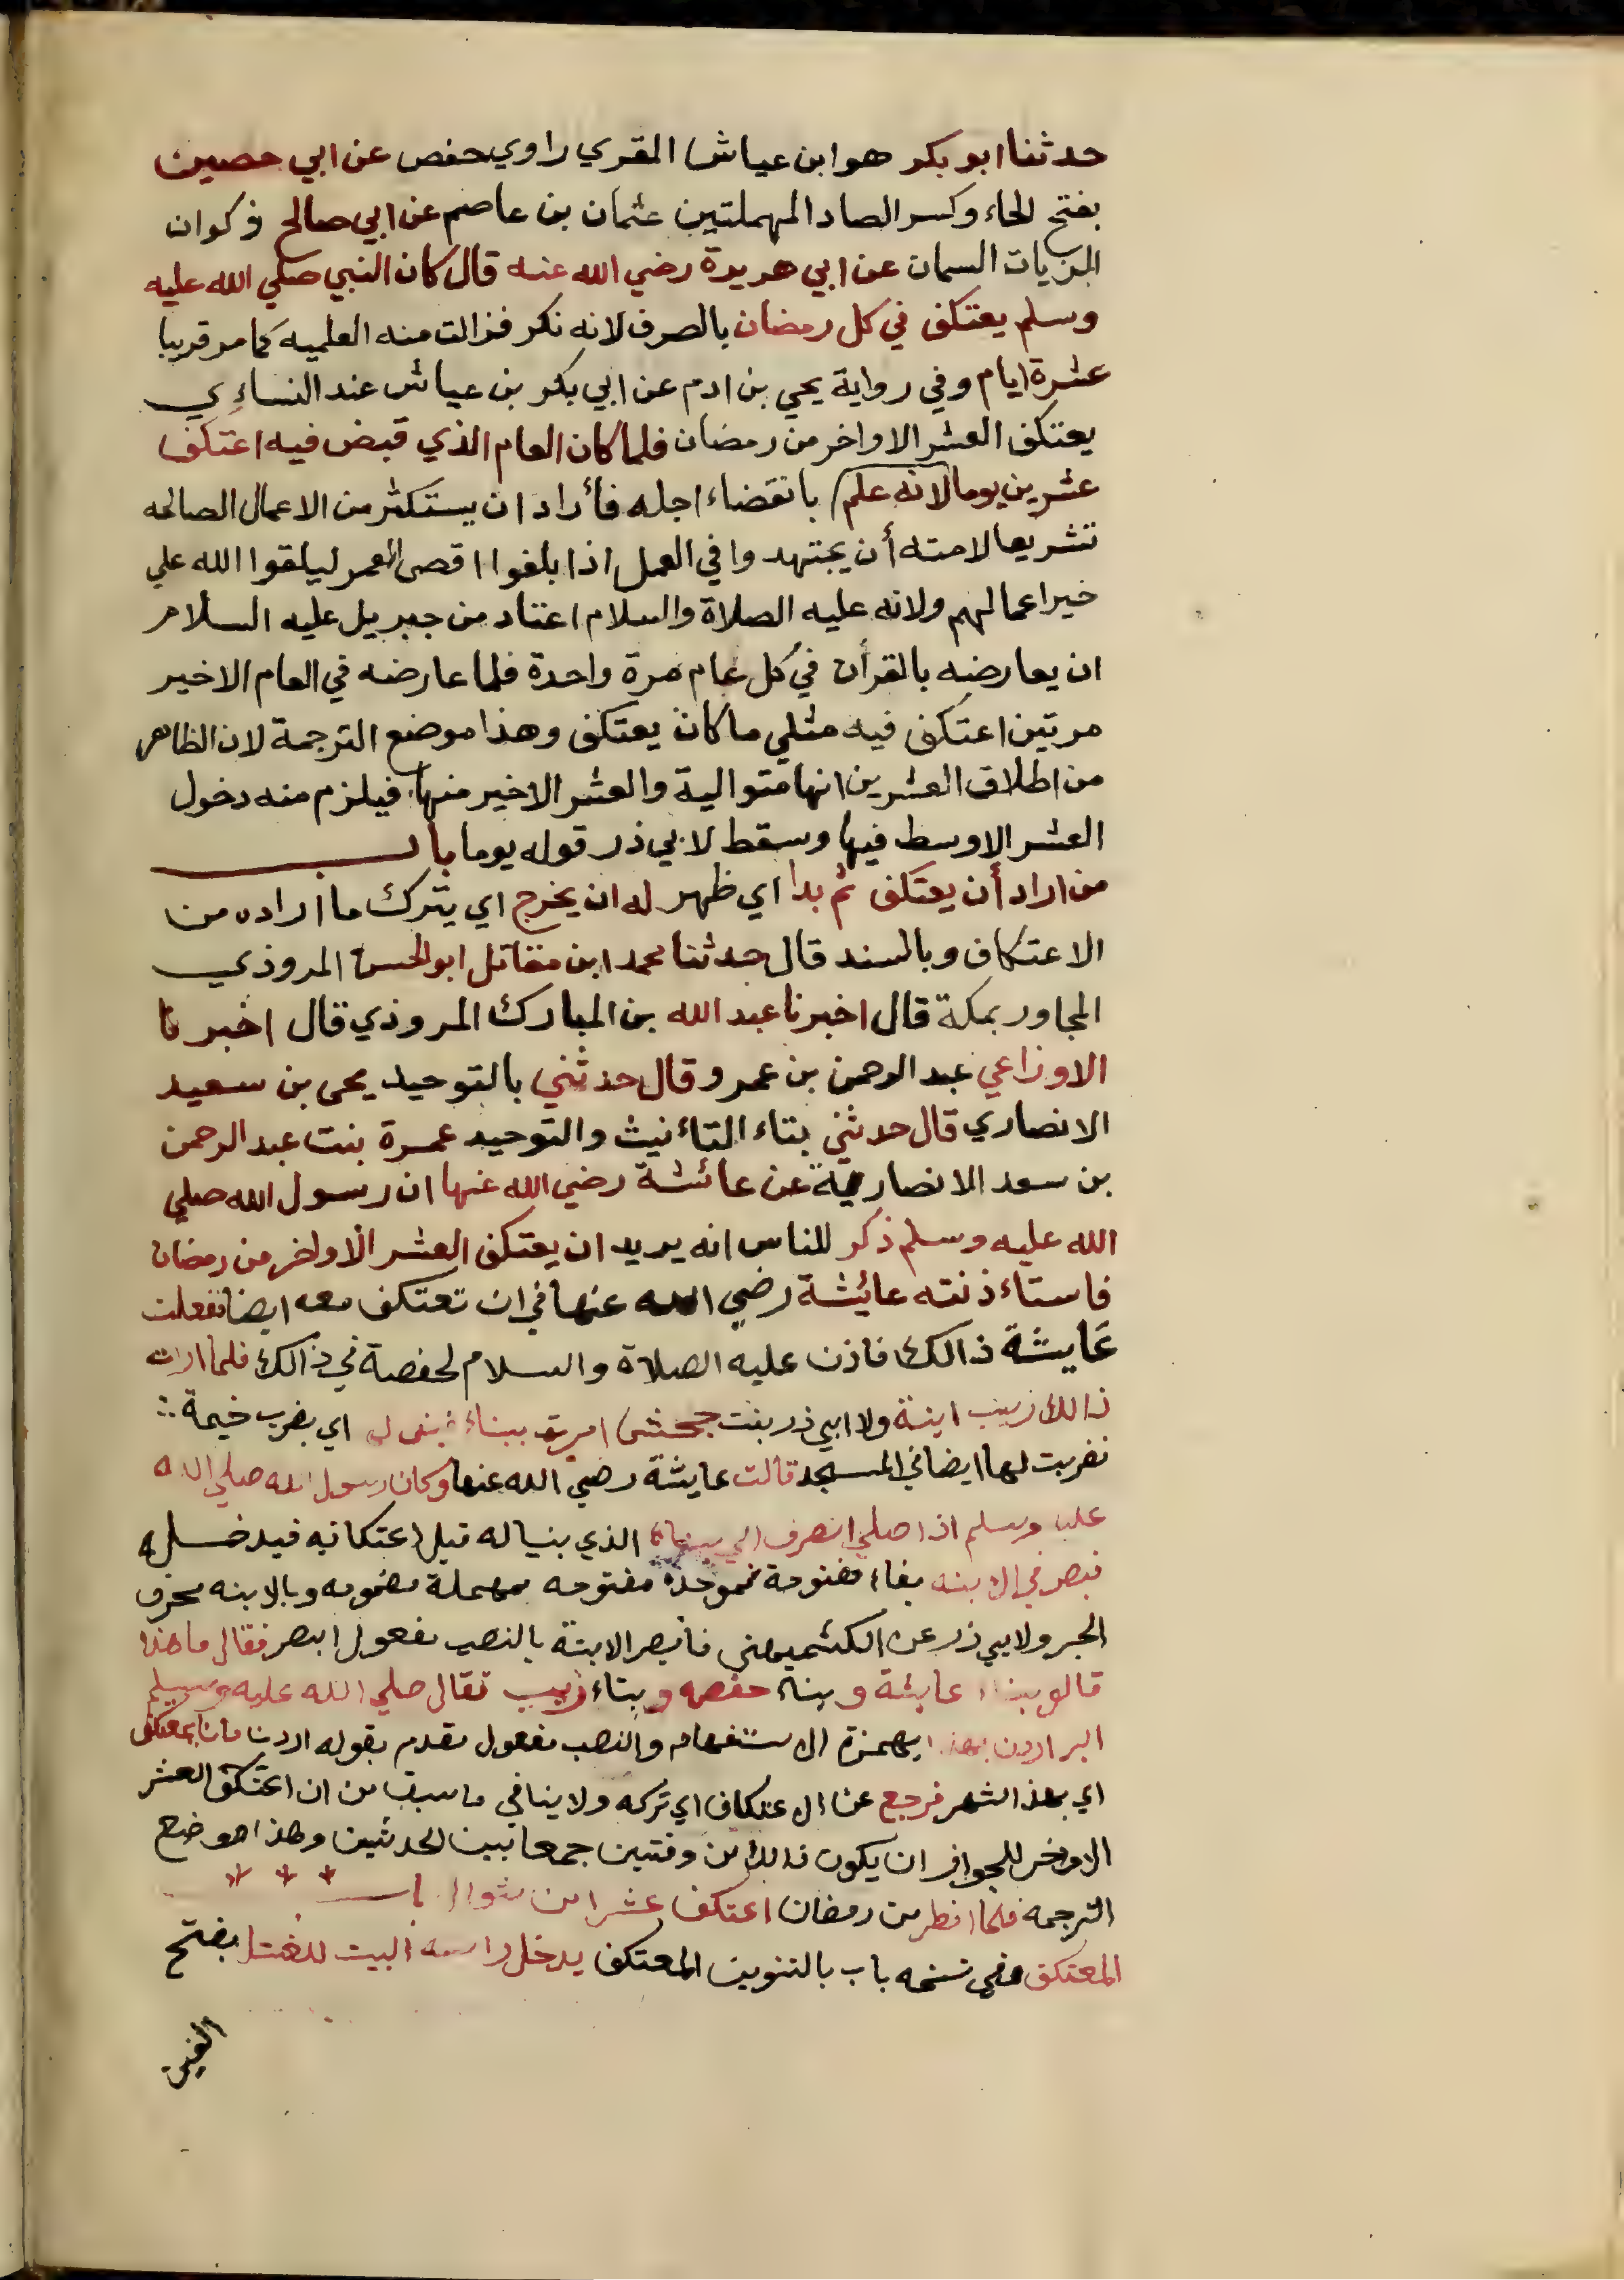 حدثنا ابو بكر هو ابن عياش المقري راوي حفص عن ابي حصين
بفتح الحاء وكسر الصاد المهملتين عثمان بن عاصم عن ابي صالح ذكوان
الزيات السمان عن ابي هريرة رضي الله عنه قال كان النبي صلي الله عليه
وسلم يعتكف في كل رمضان بالصرف لانه نكر فزالت منه العلميه كما مر قريبا
عشرة ايام وفي رواية يحي بن ادم عن ابي بكر بن عياش عند النساءي
يعتكف العشر الاواخر من رمضان فلما كان العام الذي قبض فيه اعتكف
عشرين يوما لانه علم بانقضاء اجله فأراد ان يستكثر من الاعمال الصالحه
تشريعا لامته أن يجتهدوا في العمل اذا بلغوا اقصي العمر ليلقوا الله علي
خير اعمالهم ولانه عليه الصلاة والسلام اعتاد من جبريل عليه السلام
ان يعارضه بالقرأن في كل عام مرة واحدة فلما عارضه في العام الاخير
مرتين اعتكف فيه مثلي ما كان يعتكف وهذا موضع الترجمة لان الظاهر
من اطلاق العشرين انها متوالية والعشر الاخير منها فيلزم منه دخول
العشر الاوسط فيها وسقط لابي ذر قوله يوما باب
من اراد أن يعتكف ثم بدا اي ظهر له ان يخرج اي يترك ما اراده من
الاعتكاف وبالسند قال حدثنا محمد ابن مقاتل ابو الحسن المروذي
المجاور بمكة قال اخبرنا عبد الله بن المبارك المروذي قال اخبرنا
الاوزاعي عبد الرحمن بن عمرو قال حدثني بالتوحيد يحى بن سعيد
الانصاري قال حدثتني بتاء التاءنيث والتوحيد عمرة بنت عبد الرحمن
بن سعد الانصارية عن عائشة رضي الله عنها ان رسول الله صلي
الله عليه وسلم ذكر للناس انه يريد ان يعتكف العشر الاواخر من رمضان
فاستاءذنته عائيشة رضي الله عنها في ان تعتكف معه ايضا ففعلت
عايشة ذالك فاذن عليه الصلاة والسلام لحفصة في ذالك فلما ارات
ذالك زينب ابنة ولا ابي ذر بنت جحش امرت ببناء فبني لها اي بضرب خيمة
فضربت لها ايضا في المسجد قالت عايشة رضي الله عنها وكان رسول الله صلي الله
عليه وسلم اذا صلي انصرف الي بنائه الذي بنيا له قبل اعتكافه فيدخله
فبصر في الابنه بفاء مفتوحة فموحدة مفتوحه فمهملة مضمومه وبالابنه بحرف
الجر ولابي ذر عن الكشميهني فابصر الابنة بالنصب مفعول ابصر فقال ما هذا
قالو بناء عايشة وبناء حفصه وبناء زينب فقال صلي الله عليه وسلم
البر اردن بهذا بهمزة الاستفهام والنصب مفعول مقدم بقوله اردنا ما انا بمعتكف
اي بهذا الشهر فرجع عن الاعتكاف اي تركه ولا ينافي ما سبق من ان اعتكف العشر
الاوخر للجواز ان يكون ذالك من وقتين جمعا بين الحدثين وهذا موضع
الترجمه فلما افطر من رمضان اعتكف عشرا من شوال باب * * *
المعتكف وفي نسخه باب بالتنوين المعتكف يدخل راسه البيت للغسل بفتح
الغين